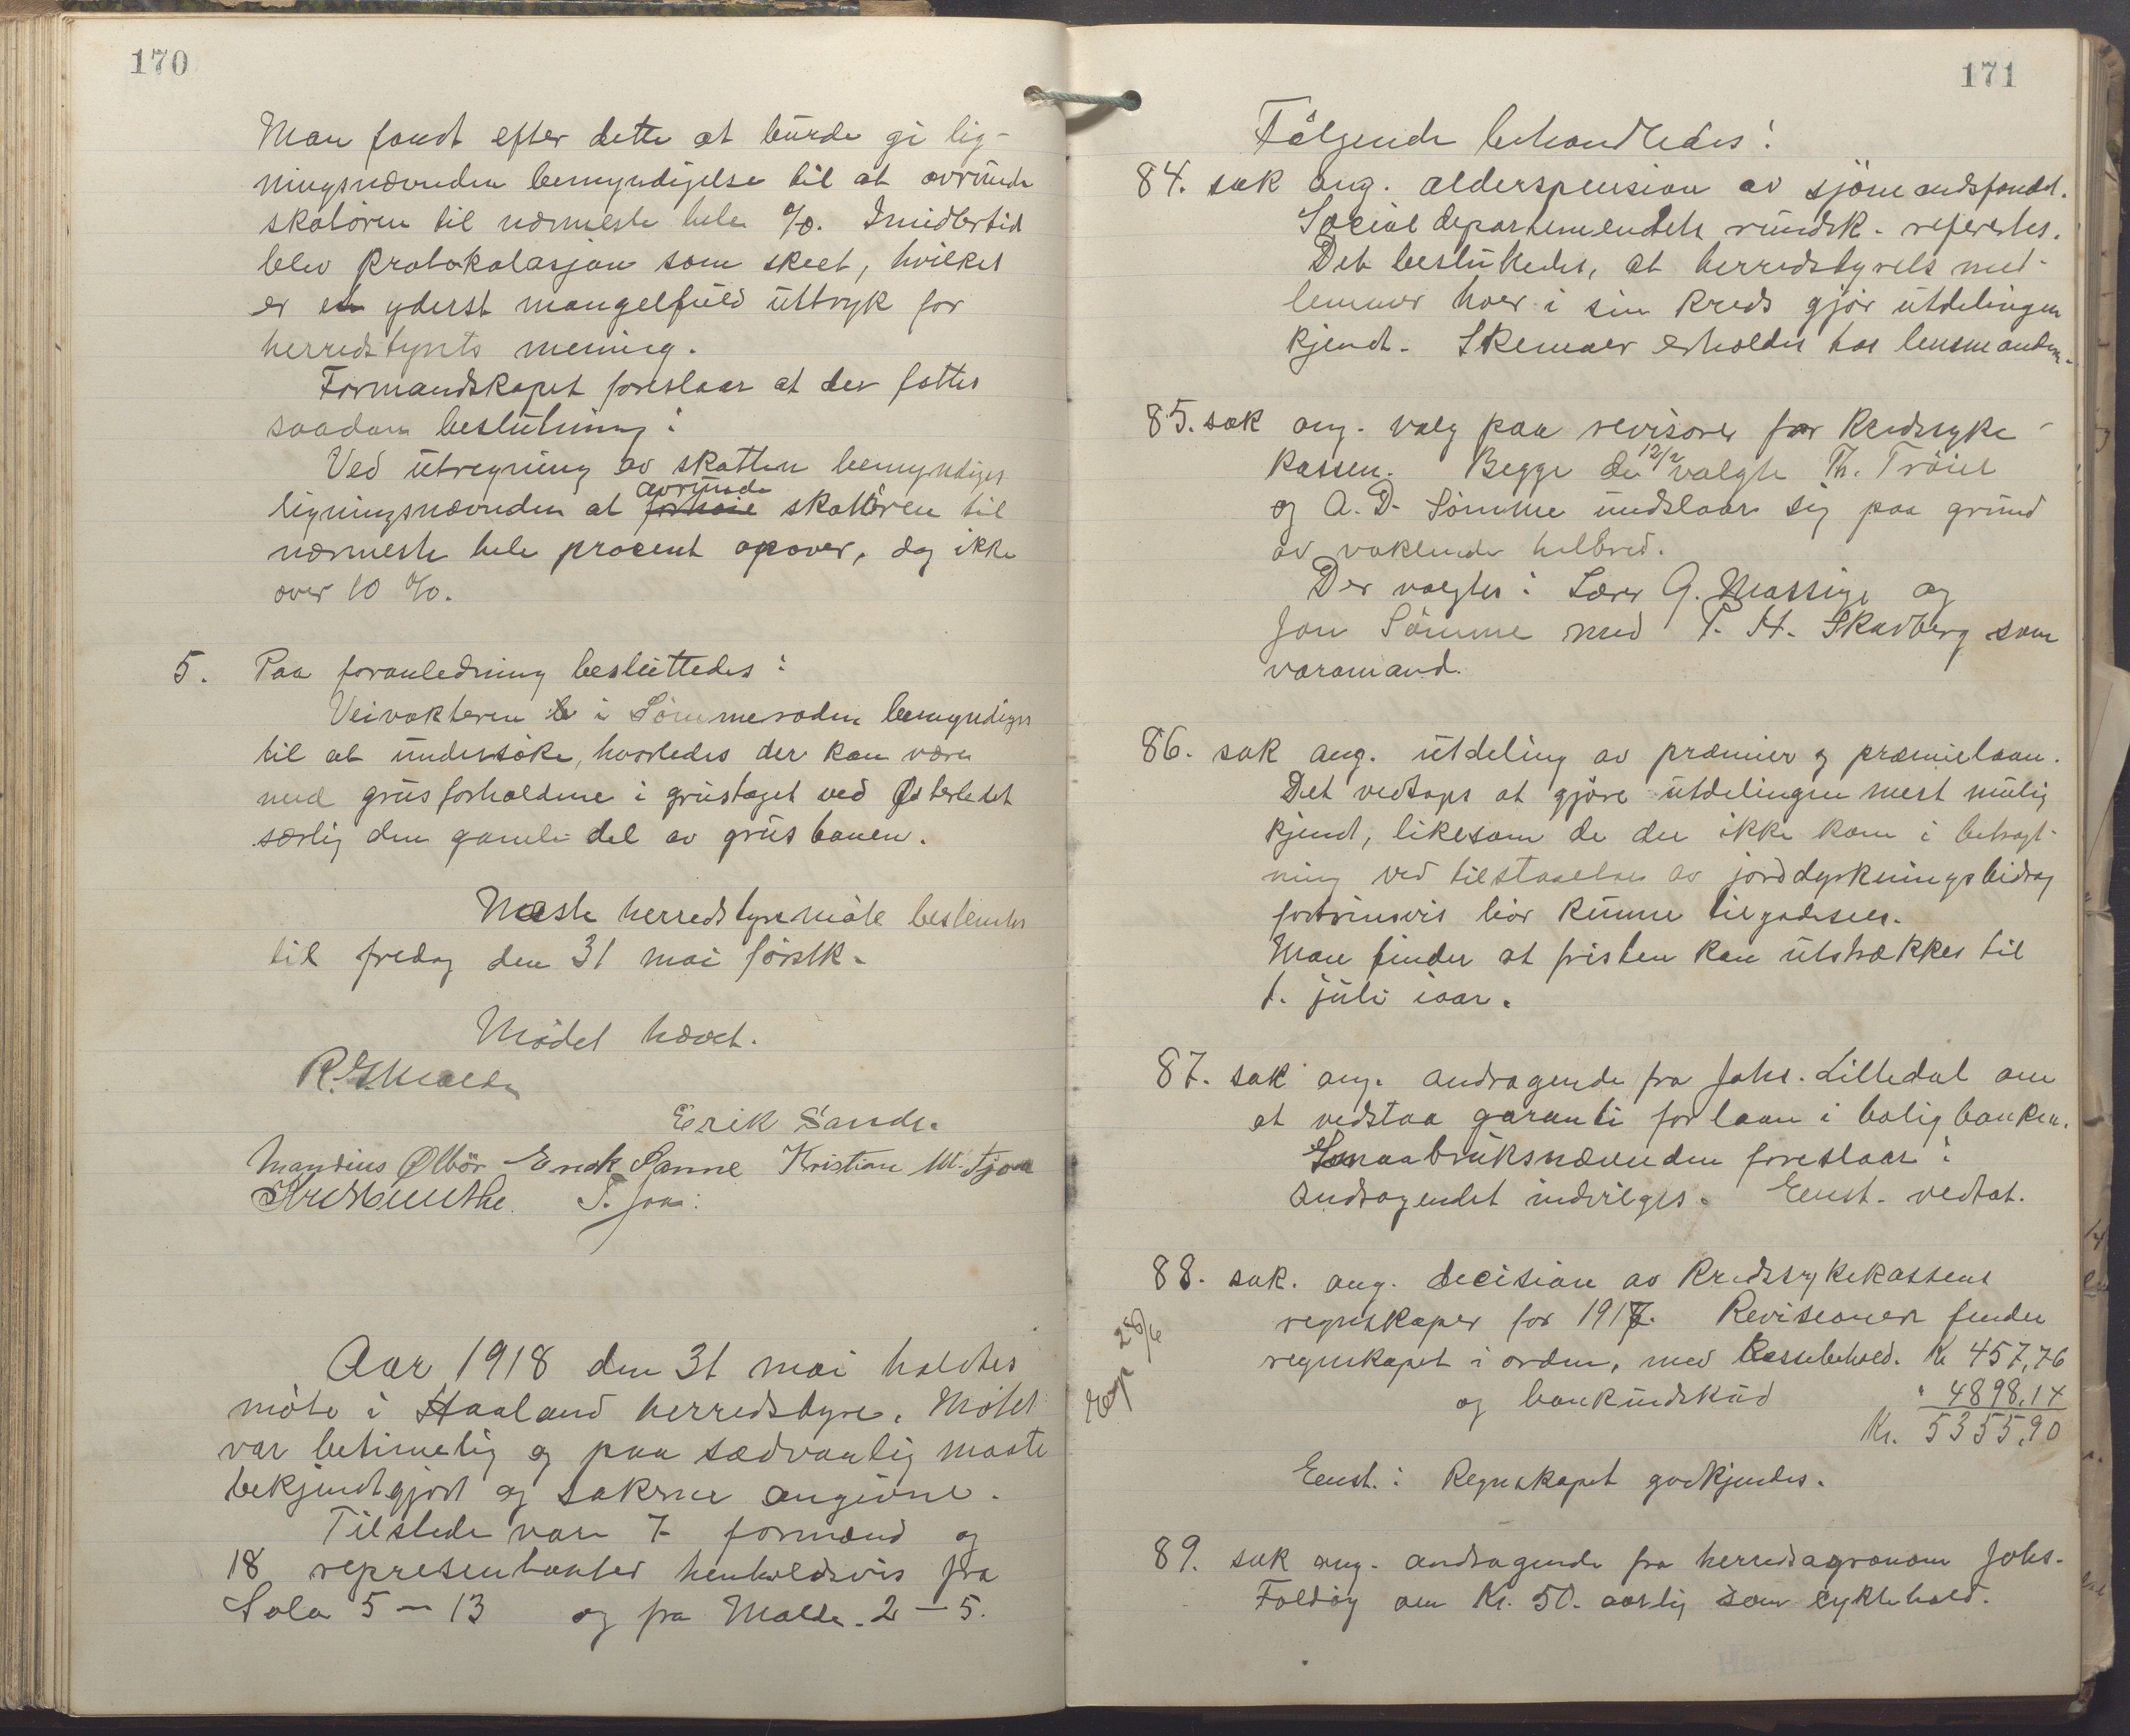 170
Man fandt efter dette at burde gi lig-
ningsnævnden bemyndigelse til at avrunde
skatøren til nærmeste hele %. Imidlertid
blev Protokolasjon som skeet, hvilket
er et yderst mangelfuld uttryk for
herredstyrets mening.
Formandskapet foreslaar at der fattes
saadan beslutning:
Ved utregning av skatten bemyndiges
avrunde
ligningsnævnden at forhøie skattøren til
nærmeste hele procent opover, dog ikke
over 10 %.
5. Paa foranledning besluttedes:
Veivokteren i Sømmeroden bemyndiges
til at undersøke, hvorledes der kan være
med grusforholdene i grustaget ved Østerletet
særlig den gamle del av grusbanen.
Næste herredstyremøte bestemtes
til fredag den 31 mai førstk.
Mødet hævet.
Erik Sande.
Mandius Ølbør Enok Sanne Kristian M. Tjora
Aar 1918 den 31 mai holdtes
møte i Haaland herredstyre. Møtet
var betimelig og paa sædvanlig maate
bekjendtgjort og sakerne angivne.
Tilstede var 7 formænd og
18 representanter henholdsvis fra
Sola 5 - 13 og fra Malde. 2 - 5.
171
Følgende behandledes:
84. sak ang. alderspension av sjømandsfondet.
Social departementets rundsk. refereertes.
Det beslutedes, at herredstyrets med-
lemmer hver i sin Kreds gjør utdelingen
kjendt. Skemaer erholdes hos lensmanden.
85. sak ang. valg paa revisorer for Kredssyke-
12/2
kassen. Begge de valgte Th. Trøiel
og A. D. Sømme undslaar sig paa grund
av vaklende helbred.
Der valgtes: Lærer G. Massige og
Jon Sømme med T. H. Skadberg som
varamand.
86. sak ang. utdeling av præmier og præmielaan.
Det vedtoges at gjøre utdelingen mest mulig
kjent, likesom de der ikke kom i betragt-
ning ved tilstaaelse av jorddyrkningsbidrag
fortrinsvis bør kunne tilgodesees.
Man finder at fristen kan utstrækkes til
1. juli iaar.
87. sak ang. andragende fra Johs. Lilledal om
at vedstaa garanti for laan i boligbanken.
Smaabruksnævnden foreslaar:
Andragendet indvilges. Enst. vedtat.
88. sak. ang. decision av Kredssykekassens
regnskaper for 1917. Revisionen finder
regnskapet i orden, med Kassebehold. Kr 457,76
og bankindskud " 4898,14
Kr. 5355,90
Exp 28/6
Enst.: Regnskapet godkjendes.
89. sak ang. andragende fra herredsagronom Johs.
Foldøy om Kr. 50. aarlig som cyklehold.